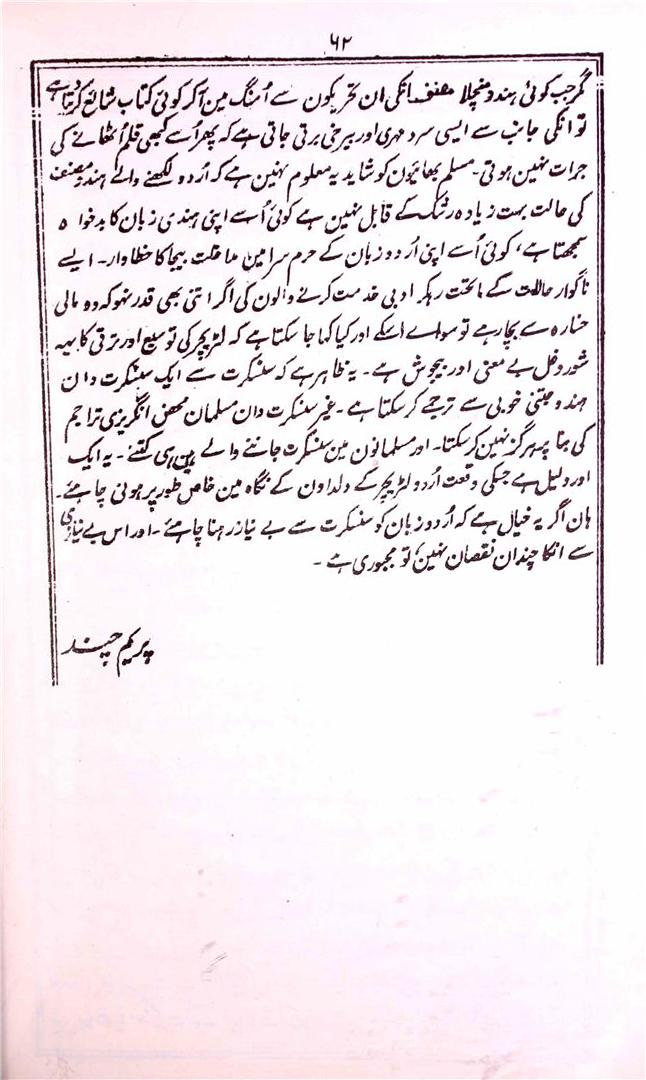 ۶۲
مگر جب کوئی ہندو منچلا مصنف انکی ان تحریکون سے اُمنگ مین آکر کوئی کتاب شائع کردیتا ہے
تو انکی جانب سے ایسی سرد مہری اور بیرخی برتی جاتی ہے کہ پھر اُسے کبھی قلم اُٹھانے کی
جرات نہین ہوتی۔ مسلم بھائیون کو شاید یہ معلوم نہین ہے کہ اُردو لکھنے والے ہندو مصنف
کی حالت بہت زیادہ رشک کے قابل نہین ہے کوئی اُسے اپنی ہندی زبان کا بدخواہ
سمجھتا ہے، کوئی اُسے اپنی اُردو زبان کے حرم سرا مین مداخلت بیجا کا خطاوار۔ ایسے
ناگوار حالات کے ماتحت رہکر ادبی خدمت کرنے والون کی اگر اتنی بھی قدر نہو کہ وہ مالی
خسارہ سے بچا رہے تو سواے اسکے اور کیا کہا جا سکتا ہے کہ لٹریچر کی توسیع اور ترقی کا یہ
شور و غل بے معنی اور بیجوش ہے۔ یہ ظاہر ہے کہ سنسکرت سے ایک سنسکرت دان
ہندو جتنی خوبی سے ترجمے کر سکتا ہے۔ غیر سنسکرت دان مسلمان محض انگریزی تراجم
کی بنا پر ہرگز نہین کر سکتا۔ اور مسلمانون مین سنسکرت جاننے والے ہین ہی کتنے۔ یہ ایک
اور دلیل ہے جسکی وقعت اُردو لٹریچر کے دلداون کے نگاہ مین خاص طور پر ہونی چاہئے۔
ہان اگر یہ خیال ہے کہ اُردو زبان کو سنسکرت سے بے نیاز رہنا چاہئے۔ اور اس بے نیازی
سے انکا چندان نقصان نہین تو مجبوری ہے۔
پریم چند